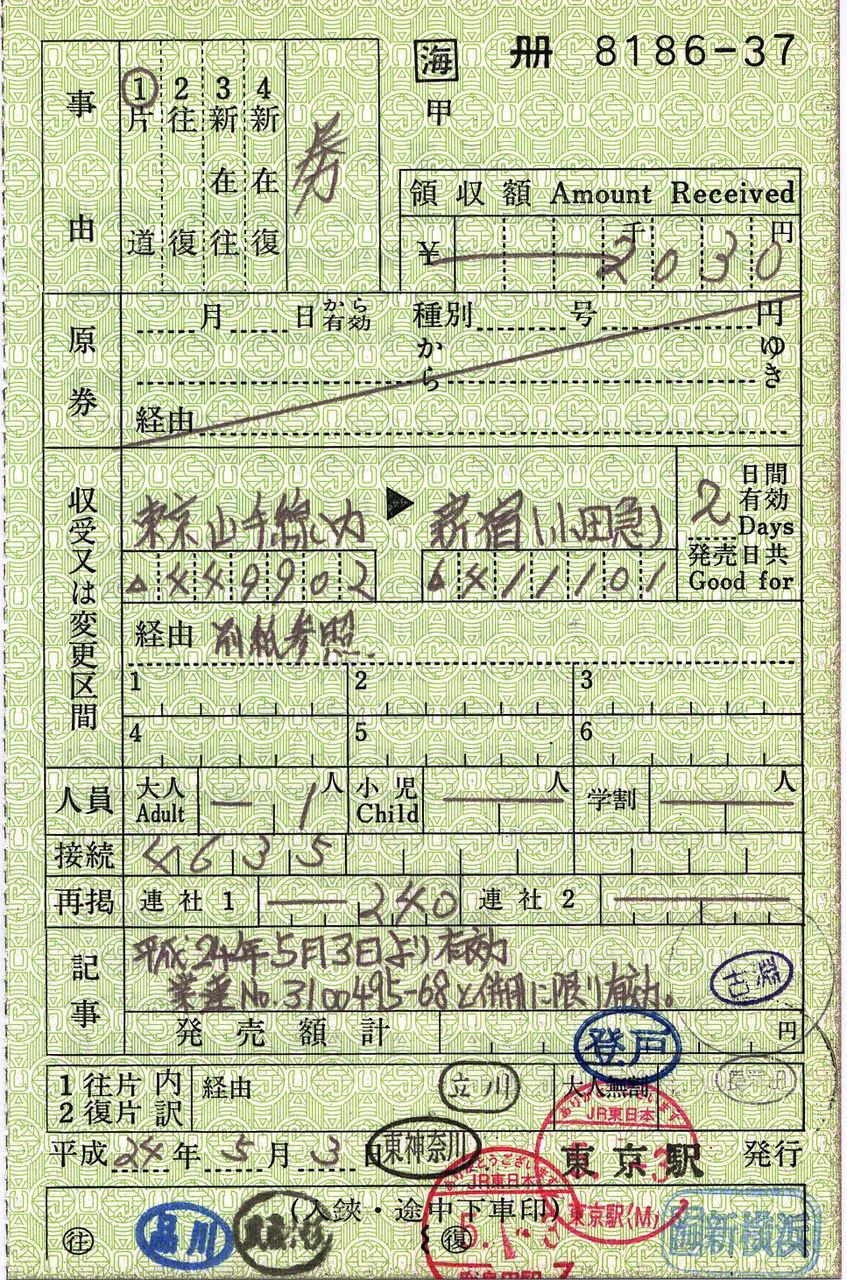 海 冊 8186-37
甲
事由
1片道
2往復
3新在往
4新在復
券
領収額 Amount Received
¥ 千 円
2030
原券
月 日から有効 種別 号 円
から ゆき
経由
収受又は変更区間
東京山手線内 ▶ 新宿(小田急)
449902 411101
2 日間有効 Days
発売日共 Good for
経由 別紙参照.
1 2 3
4 5 6
人員 大人 Adult 1人 小児 Child 人 学割 人
接続 4635
再掲 連社1 240 連社2
記事
平成24年5月3日より有効
業垂No.3100495-68と併用に限り有効。
古淵
発売額計 円
登戸
1往片 内 経由 立川 大人無割
2復片 訳
平成24年5月3日 東神奈川 東京駅 発行
ありがとうございます
JR東日本
東京駅(M)
(入鋏・途中下車印)
往 品川 復
ありがとうございます
JR東日本
新横浜